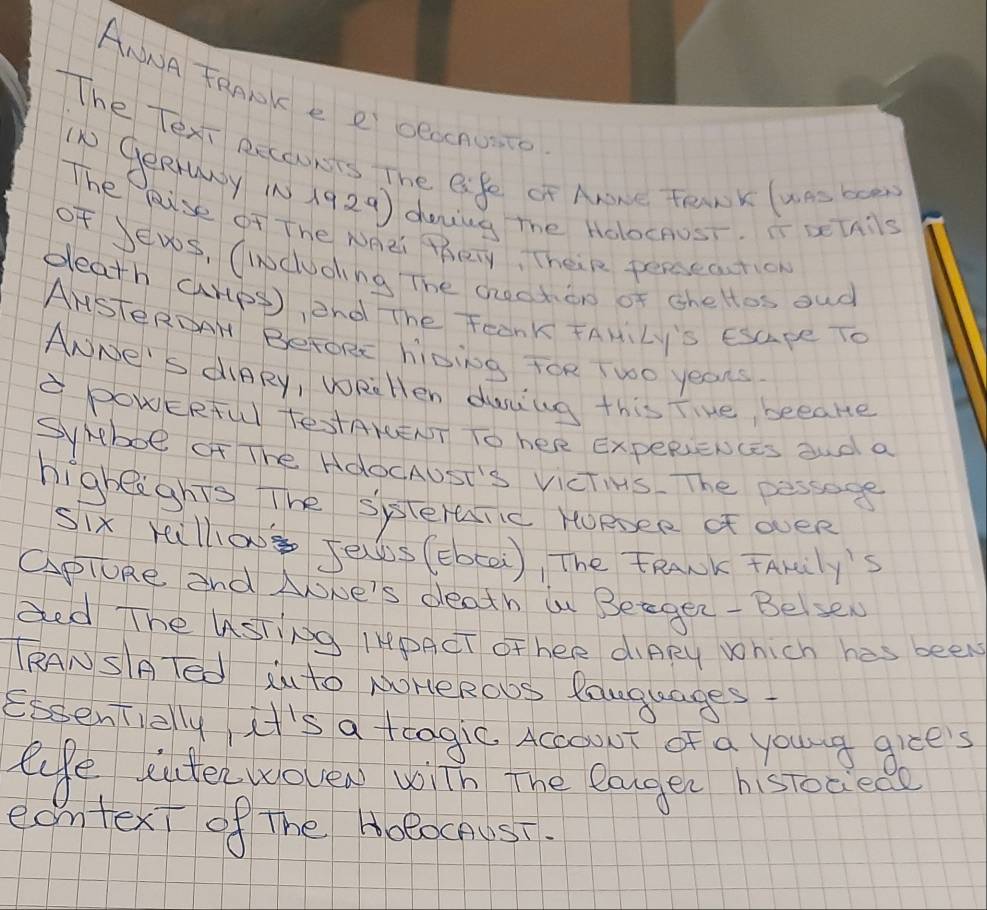 ANNA FRANK e l' OLOCAUSTO.
The Text Recounts The life of Anne Frank (was born
in Germany in 1929) during The Holocaust. It details
The Rise of The Nazi Party, Their persecution
of Jews, (including The creation of Ghettos and
death camps), and The Frank Family's Escape To
Amsterdam Before hiding For Two years.
Anne's diary, written during this Time, became
a powerful testament To her Experiences and a
symbol of The Holocaust's victims. The passage
highlights The systematic Murder of over
six million Jews (Ebrei), The Frank Family's
Capture and Anne's death in Bergen-Belsen
and The lasting impact of her diary which has been
Translated into numerous languages.
Essentially, it's a tragic Account of a young girl's
life interwoven with The larger historical
context of The Holocaust.